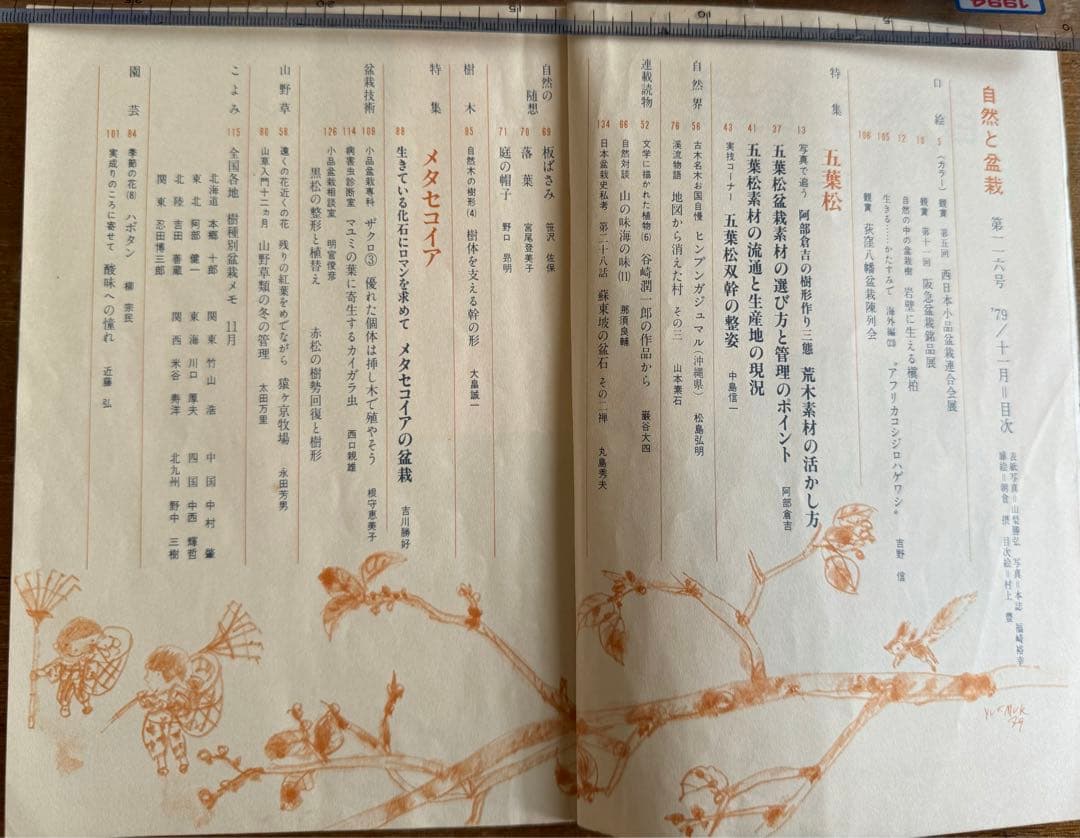 自然と盆栽 第一一六号 '79/十一月＝目次
表紙写真＝山梨勝弘 写真＝本誌 福崎裕幸
扉絵＝朝倉 摂 目次絵＝村上 豊
口絵
5 〈カラー〉 観賞 第五回 西日本小品盆栽連合会展
10 観賞 第十一回 阪急盆栽銘品展
12 自然の中の盆栽樹 岩壁に生える槇柏
105 生きる……かたすみで 海外編㉓ “アフリカコシジロハゲワシ” 吉野 信
106 観賞 荻窪八幡盆栽陳列会
特集 五葉松
13 写真で追う 阿部倉吉の樹形作り三態 荒木素材の活かし方
37 五葉松盆栽素材の選び方と管理のポイント 阿部倉吉
41 五葉松素材の流通と生産地の現況
43 実技コーナー 五葉松双幹の整姿 中島信一
自然界
56 古木名木お国自慢 ヒンプンガジュマル(沖縄県) 松島弘明
76 渓流物語 地図から消えた村 その三 山本素石
連載読物
52 文学に描かれた植物(6) 谷崎潤一郎の作品から 巌谷大四
66 自然対談 山の味海の味(11) 那須良輔
134 日本盆栽史私考 第二十八話 蘇東坡の盆石 その二 禅 丸島秀夫
自然の随想
69 板ばさみ 笹沢 佐保
70 落葉 宮尾登美子
71 庭の帽子 野口 昂明
樹木
85 自然木の樹形(4) 樹体を支える幹の形 大畠誠一
特集 メタセコイア
88 生きている化石にロマンを求めて メタセコイアの盆栽 吉川勝好
盆栽技術
109 小品盆栽専科 ザクロ③ 優れた個体は挿し木で殖やそう 根守恵美子
114 病害虫診断室 マユミの葉に寄生するカイガラ虫 西口親雄
126 小品盆栽相談室 明官俊彦
黒松の整形と植替え 赤松の樹勢回復と樹形
山野草
58 遠くの花近くの花 残りの紅葉をめでながら 猿ヶ京牧場 永田芳男
60 山草入門十二ヵ月 山野草類の冬の管理 太田万里
こよみ
115 全国各地 樹種別盆栽メモ 11月
北海道 本郷 十郎 関東 竹山 浩 中国 中村 肇
東北 阿部 健一 東海 川口 厚夫 四国 中西 輝哲
北陸 吉田 善蔵 関西 米谷 寿洋 北九州 野中 三樹
関東 忍田博三郎
園芸
84 季節の花(8) ハボタン 柳 宗民
101 実成りのころに寄せて 酸味への憧れ 近藤 弘
YUT・MUR
79
15
20
5
0
1994